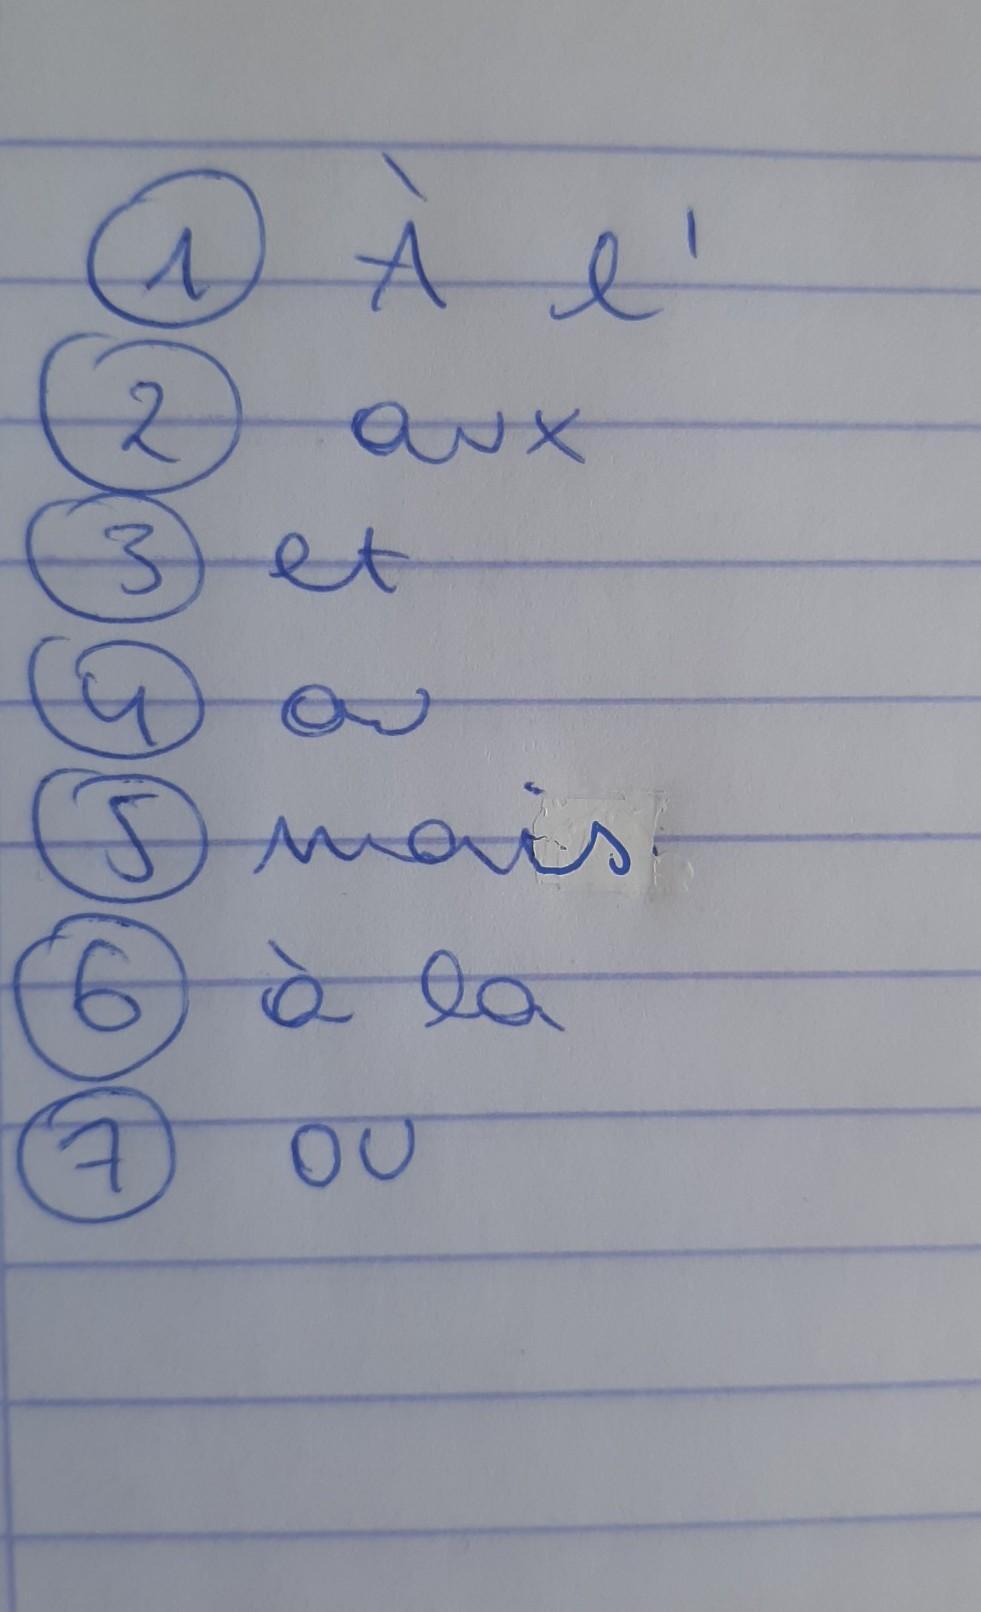 1 À l'
2 aux
3 et
4 au
5 mais
6 à la
7 ou